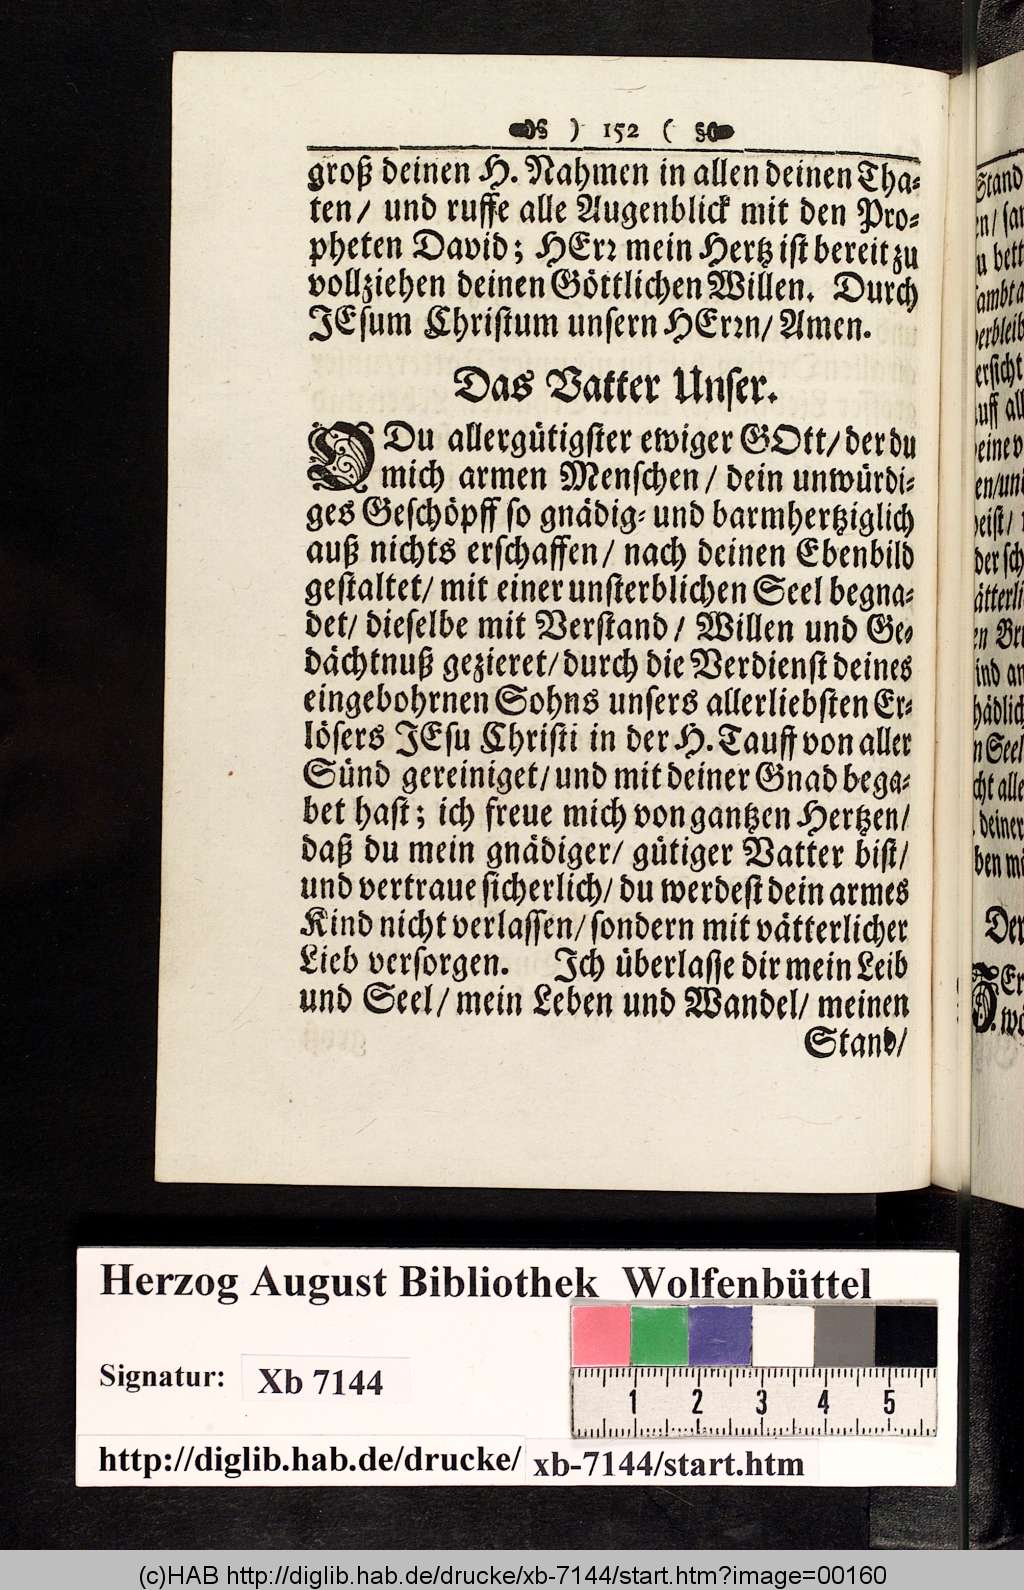 ) 152 (
groß deinen H. Nahmen in allen deinen Tha-
ten/ und ruffe alle Augenblick mit den Pro-
pheten David; HErr mein Hertz ist bereit zu
vollziehen deinen Göttlichen Willen. Durch
JEsum Christum unsern HErrn/ Amen.
Das Vatter Unser.
O Du allergütigster ewiger GOtt/ der du
mich armen Menschen/ dein unwürdi-
ges Geschöpff so gnädig- und barmhertziglich
auß nichts erschaffen/ nach deinen Ebenbild
gestaltet/ mit einer unsterblichen Seel begna-
det/ dieselbe mit Verstand/ Willen und Ge-
dächtnuß gezieret/ durch die Verdienst deines
eingebohrnen Sohns unsers allerliebsten Er-
lösers JEsu Christi in der H. Tauff von aller
Sünd gereiniget/ und mit deiner Gnad bega-
bet hast; ich freue mich von gantzen Hertzen/
daß du mein gnädiger/ gütiger Vatter bist/
und vertraue sicherlich/ du werdest dein armes
Kind nicht verlassen/ sondern mit vätterlicher
Lieb versorgen. Ich überlasse dir mein Leib
und Seel/ mein Leben und Wandel/ meinen
Stand/
Herzog August Bibliothek Wolfenbüttel
Signatur: Xb 7144
1 2 3 4 5
http://diglib.hab.de/drucke/ xb-7144/start.htm
(c)HAB http://diglib.hab.de/drucke/xb-7144/start.htm?image=00160